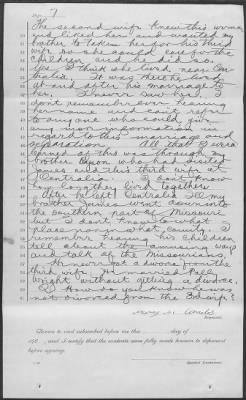 7
The second wife knew this woman
and liked her and wanted my
brother to take her for his third
wife so she could care for the
children and he did so.
Yes I think she lived near Cen-
tralia. It was there he lived
at and after his marriage to
her. I never saw her. I
dont remember ever hearing
her name and cant refer
to any one who could give
any information in
regard to this marriage and
separation. All that I ever
learned of this was through
brother who had visited
James and this third wife at
Centralia. I dont know
how long they lived together
After he left Centralia Ill my
brother James went down into
the southern part of Missouri
but I dont know to what
place nor in what county. I
remember hearing his children
tell about the amusing ways
and talk of the Missourians.
He never got a divorce from the
third wife. He married Nell
Wright without getting a divorce.
Q How do you know he was
not divorced from the 3d wife?
Mary
Deponent.
Sworn to and subscribed before me this day of
190 , and I certify that the contents were fully made known to deponent
before signing.
Special Examiner.